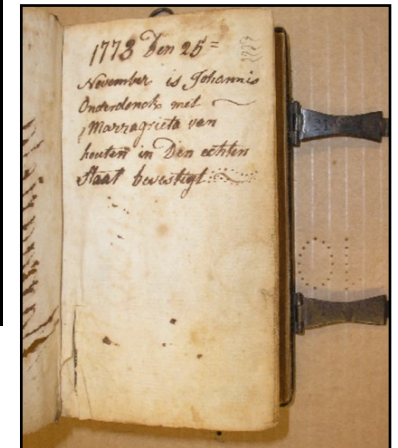 1773 Den 25=
November is Johannis
Onderdonck met
Marragrieta van
houten in Den echten
Staat bevestigt